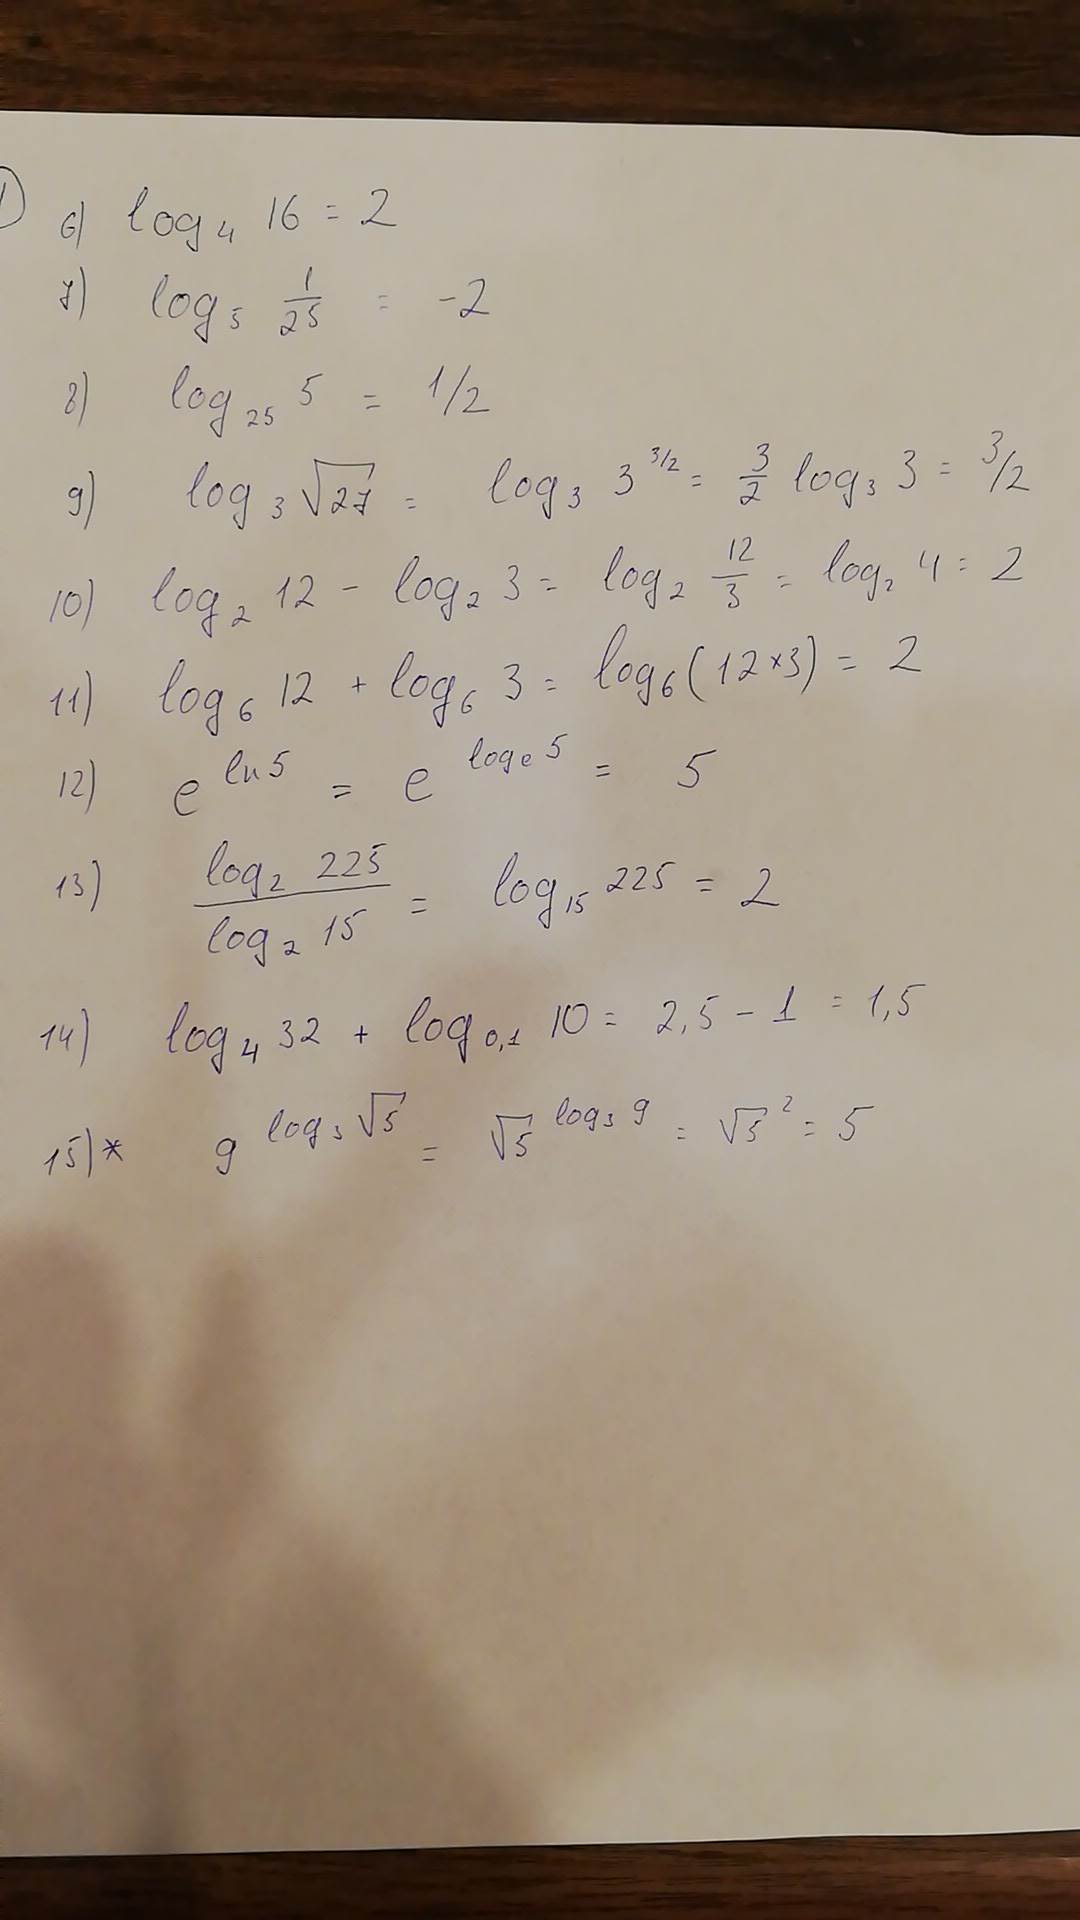 1) 6) log₄ 16 = 2
7) log₅ 1/25 = -2
8) log₂₅ 5 = 1/2
9) log₃ √27 = log₃ 3^(3/2) = 3/2 log₃ 3 = 3/2
10) log₂ 12 - log₂ 3 = log₂ 12/3 = log₂ 4 = 2
11) log₆ 12 + log₆ 3 = log₆ (12×3) = 2
12) e^(ln 5) = e^(logₑ 5) = 5
13) log₂ 225 / log₂ 15 = log₁₅ 225 = 2
14) log₄ 32 + log₀,₁ 10 = 2,5 - 1 = 1,5
15)* 9^(log₃ √5) = √5^(log₃ 9) = √5² = 5